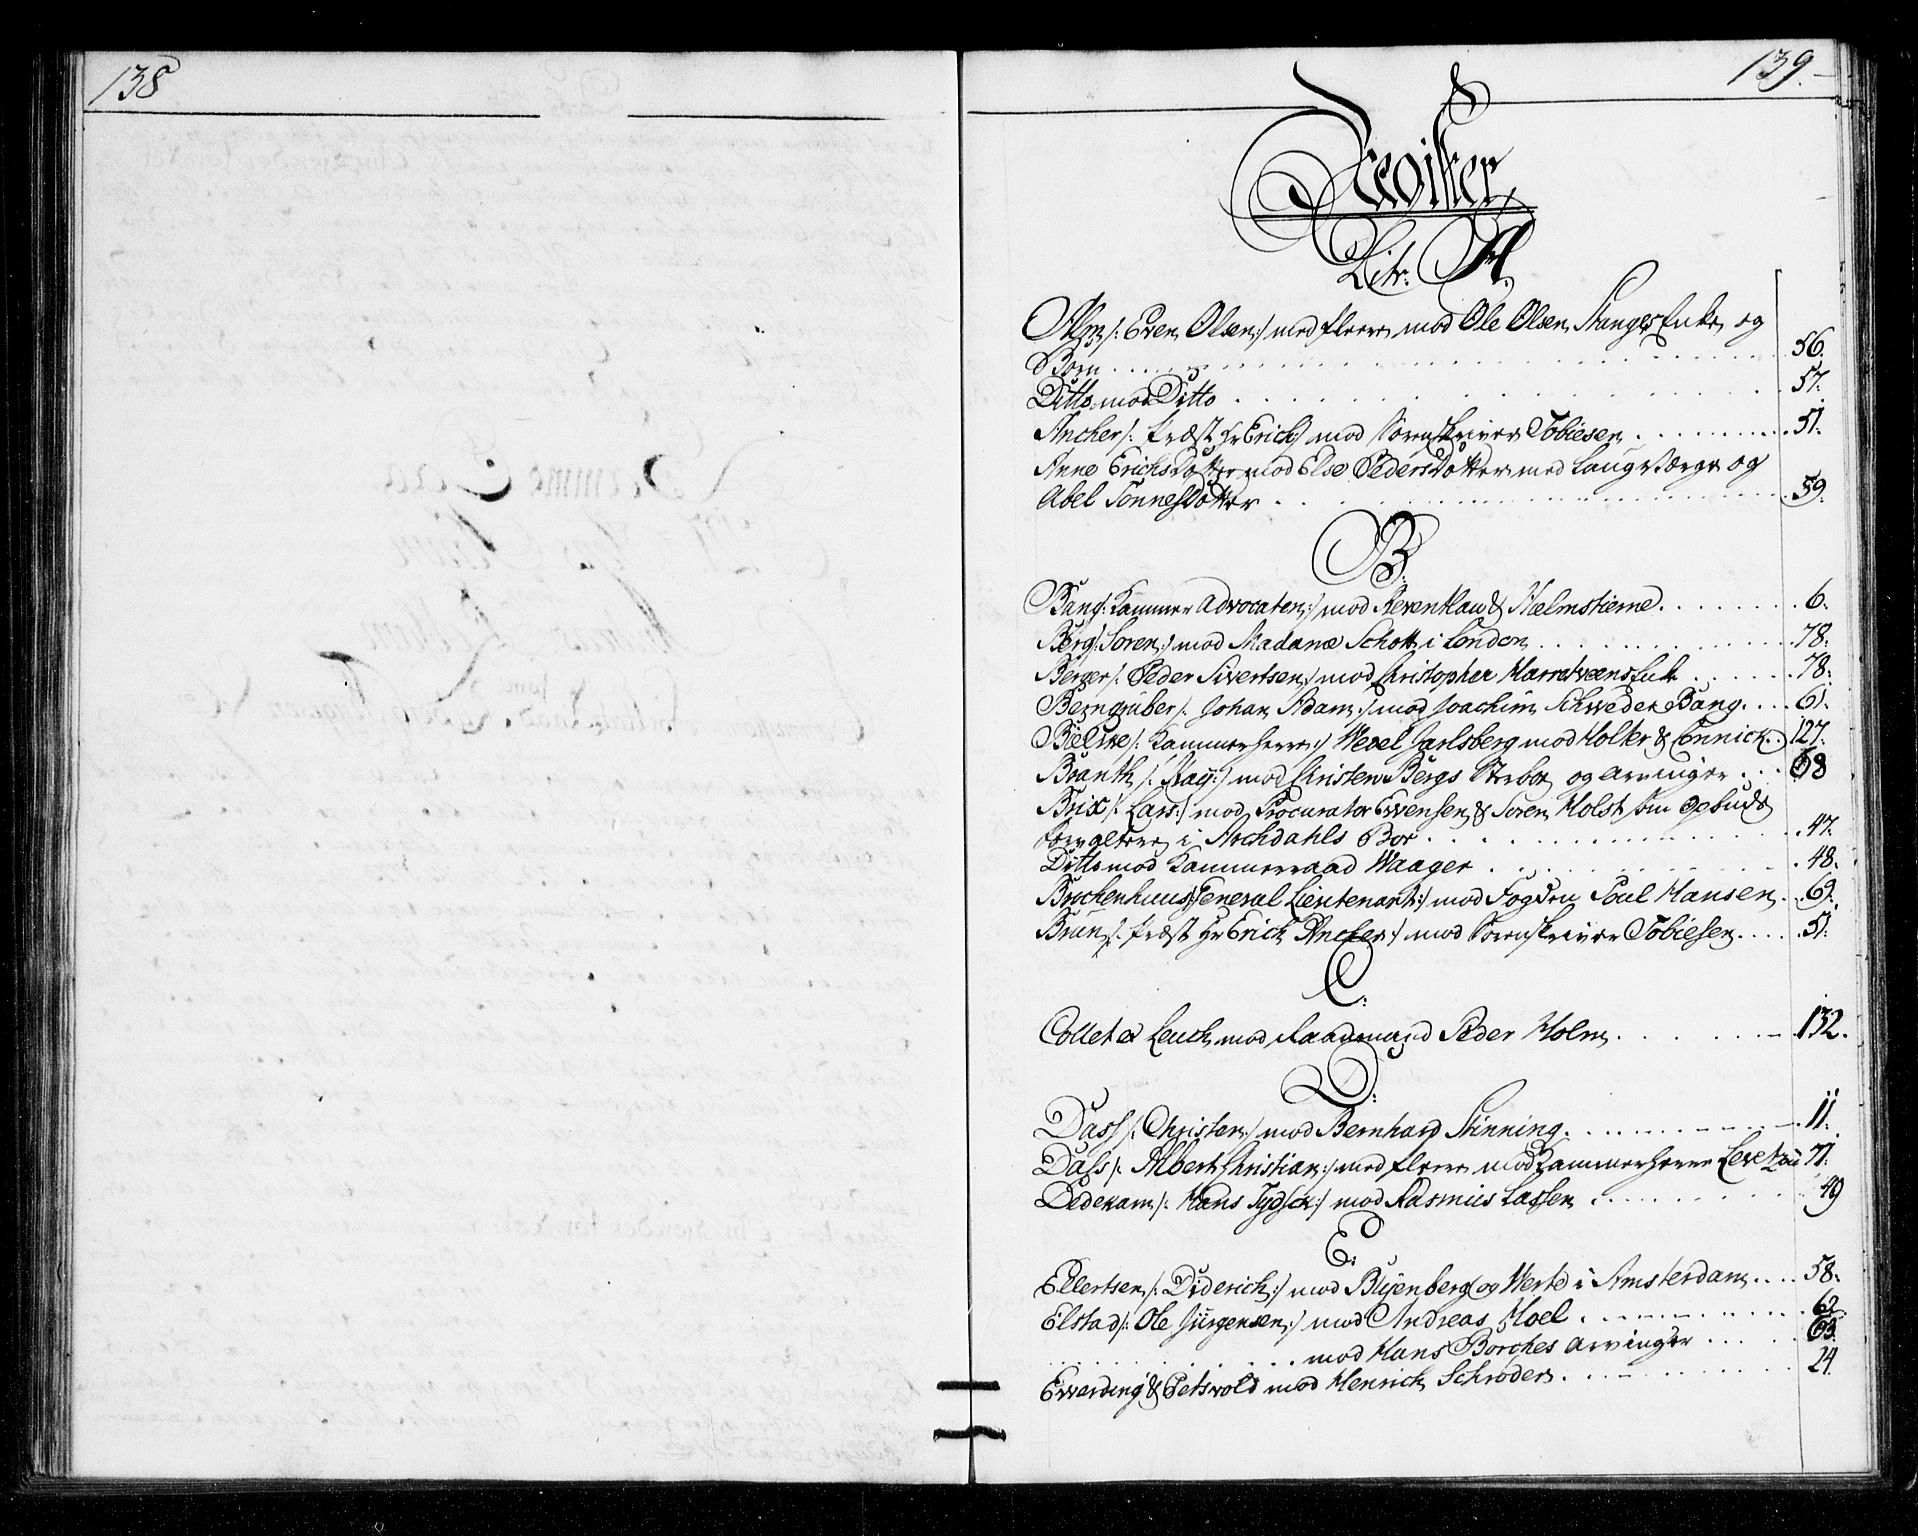 138
139.
Register
Litr: A.
Alm /: Even Olsen :/ med fleere mod Ole Olsen Stanges Enke og
Børn . . . 56.
Ditto mod Ditto . . . 57.
Ancher /: Præst Hr Erich :/ mod Sorenskriver Tobiesen . . . 51.
Anne Erichsdotter mod Else Pedersdotter med Laugværge og
Abel Tonnesdotter . . . 59.
B:
Bang /: Kammer Advocaten :/ mod Reventlau & Hielmstierne . . . 6.
Berg /: Soren :/ mod Madame Schott i London . . . 78.
Berger /: Peder Sivertsen :/ mod Christopher Harretveens Enke . . . 78.
Berngruber /: Johan Adam :/ mod Joachim Schweder Bang . . . 61.
Bielke /: Kammerherre :/ Wedel Jarlsberg mod Holter & Ennich . . 127.
Branth /: Kay :/ mod Christen Bergs Sterboe og Arvinger . . . 68
Brix /: Lars :/ mod Procurator Evensen & Soren Holst som Opbuds
forvaltere i Arctdahls Boe . . . 47.
Ditto mod Kammerraad Waager . . . 48.
Brochenhuus /: General Lieutenant :/ mod Fogden Poul Hansen . . 69.
Brun /: Præst Hr Erich Ancher :/ mod Sorenskriver Tobiesen . . . 51.
C:
Collet & Leuch mod Raadmand Peder Holm . . . 132.
D:
Dass /: Christen :/ mod Bernhard Stinning . . . 11.
Dass /: Albert Christian :/ med fleere mod Kammerherre Levetzau 71.
Dedekam /: Hans Tydsck :/ mod Rasmus Lassen . . . 49
E:
Ellertsen /: Diderich :/ mod Buyenberg og Werte i Amsterdam . . . 58.
Elstad /: Ole Jürgensen :/ mod Andreas Moel . . . 62.
. . . mod Hans Borches Arvinger . . . 63.
Ewerding & Petsvold mod Henrich Schroder . . . 24.